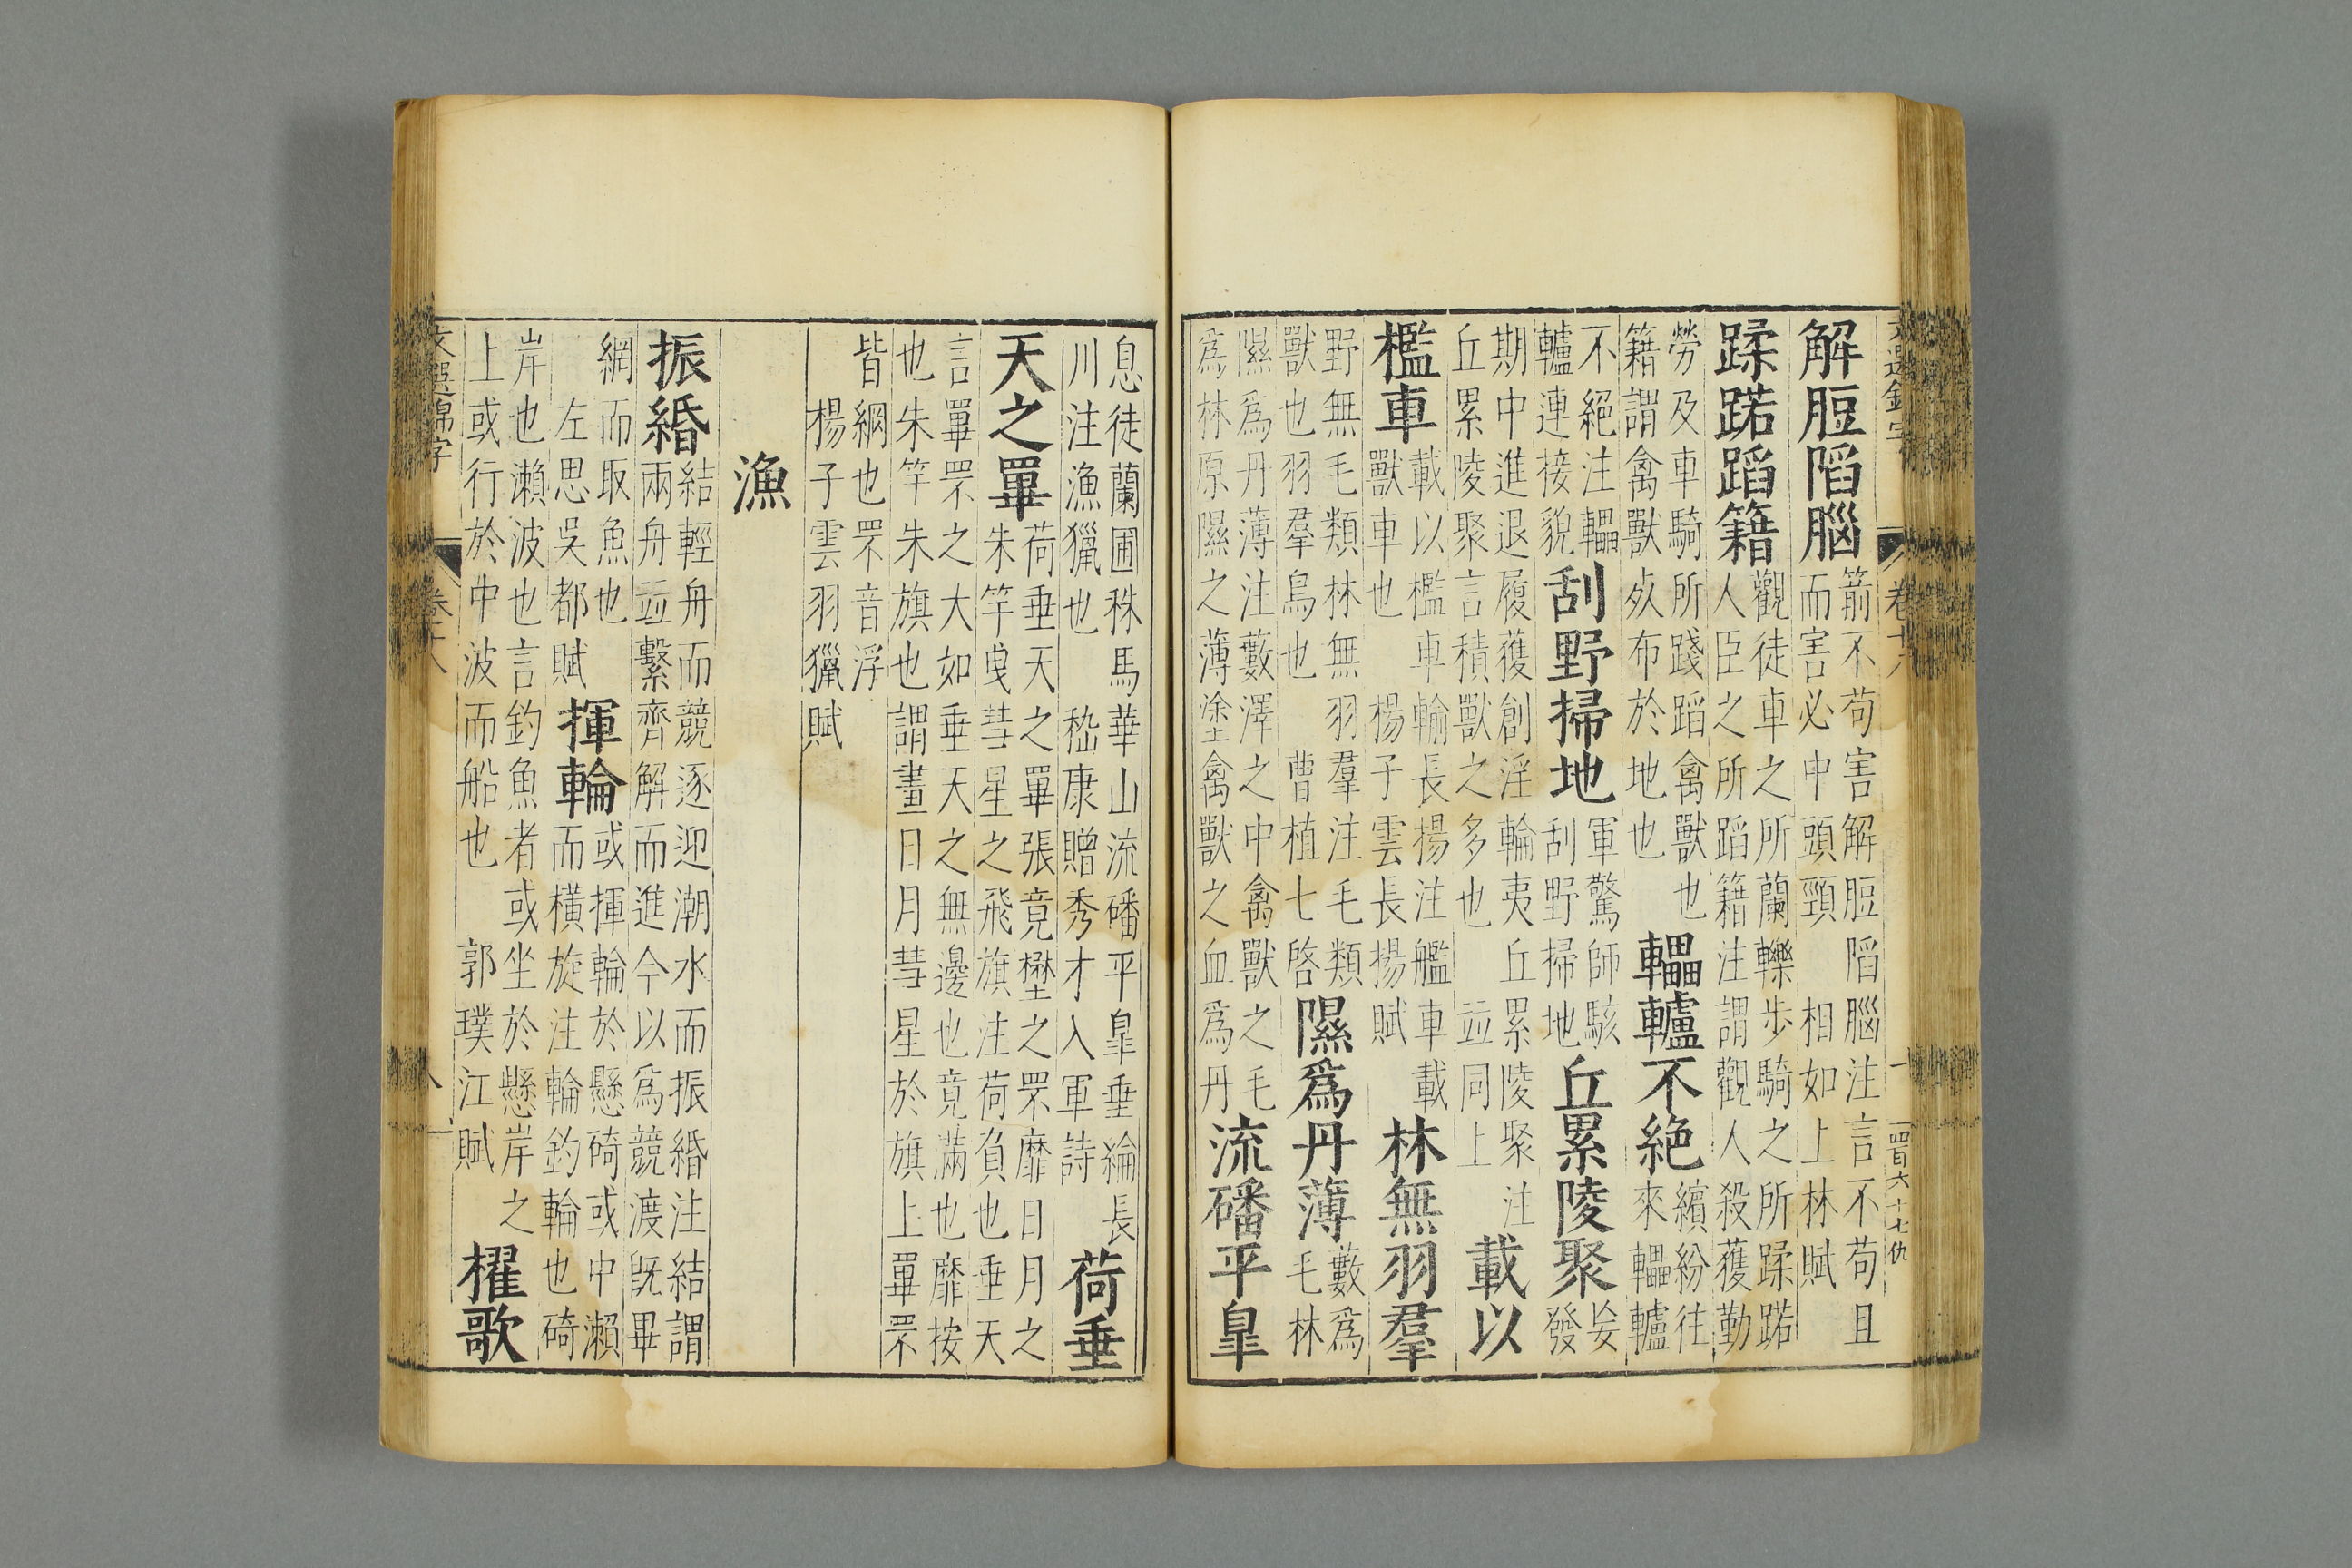 卷十八
解脰陷腦
箭不苟害解脰陷腦注言不苟且
而害必中頭頸 相如上林賦
蹂踖蹈籍
觀徒車之所蘭轢步騎之所蹂踖
人臣之所蹈籍注謂觀人殺獲勤
勞及車騎所踐蹈禽獸也
籍謂禽獸㱠布於地也
轠轤不絕
繽紛往
來轠轤
不絕注轠
轤連接貌
刮野掃地
軍驚師駭
刮野掃地
丘累陵聚
妄
發
期中進退履獲創淫輪夷丘累陵聚注
丘累陵聚言積獸之多也 並同上
載以
檻車
載以檻車輸長楊注艦車載
獸車也 楊子雲長楊賦
林無羽羣
野無毛類林無羽羣注毛類
獸也羽羣鳥也 曹植七啓
隰爲丹薄
藪爲
毛林
隰爲丹薄注藪澤之中禽獸之毛
爲林原隰之薄塗禽獸之血爲丹
流磻平皐
息徒蘭圃秣馬華山流磻平皐垂綸長
川注漁獵也 嵇康贈秀才入軍詩
荷垂
天之罼
荷垂天之罼張竟壄之罘靡日月之
朱竿曳彗星之飛旗注荷負也垂天
言罼罘之大如垂天之無邊也竟滿也靡按
也朱竿朱旗也謂畫日月彗星於旗上罼罘
皆網也罘音浮
楊子雲羽獵賦
漁
振緡
結輕舟而競逐迎潮水而振緡注結謂
兩舟並繫齊解而進今以爲競渡旣畢
網而取魚也
左思吳都賦
揮輪
或揮輪於懸碕或中瀨
而橫旋注輪釣輪也碕
岸也瀨波也言釣魚者或坐於懸岸之
上或行於中波而船也 郭璞江賦
櫂歌
文選錦字
卷十八